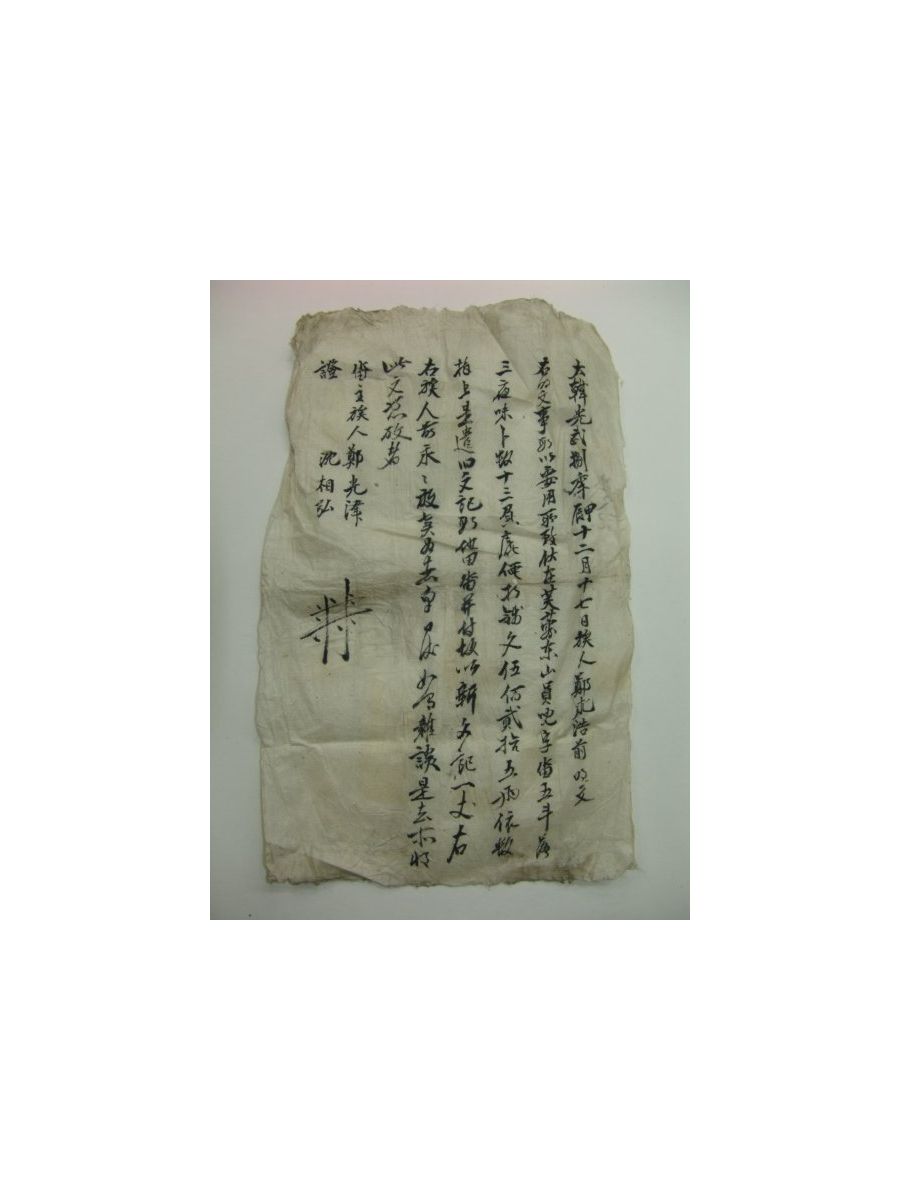 大韓光武捌年甲辰十二月十七日族人鄭光浩前明文
右明文事段以要用所致伏在芙蓉東山員字畓五斗落
三夜味卜數十三負庫価折錢文伍佰貳拾五兩依數
捧上是遣旧文記段畓幷付故以新文記一丈右
右族人前永永放賣爲去乎日後如有雜談是去等將
此文憑故者
畓主族人鄭光澤
證 沈相弘